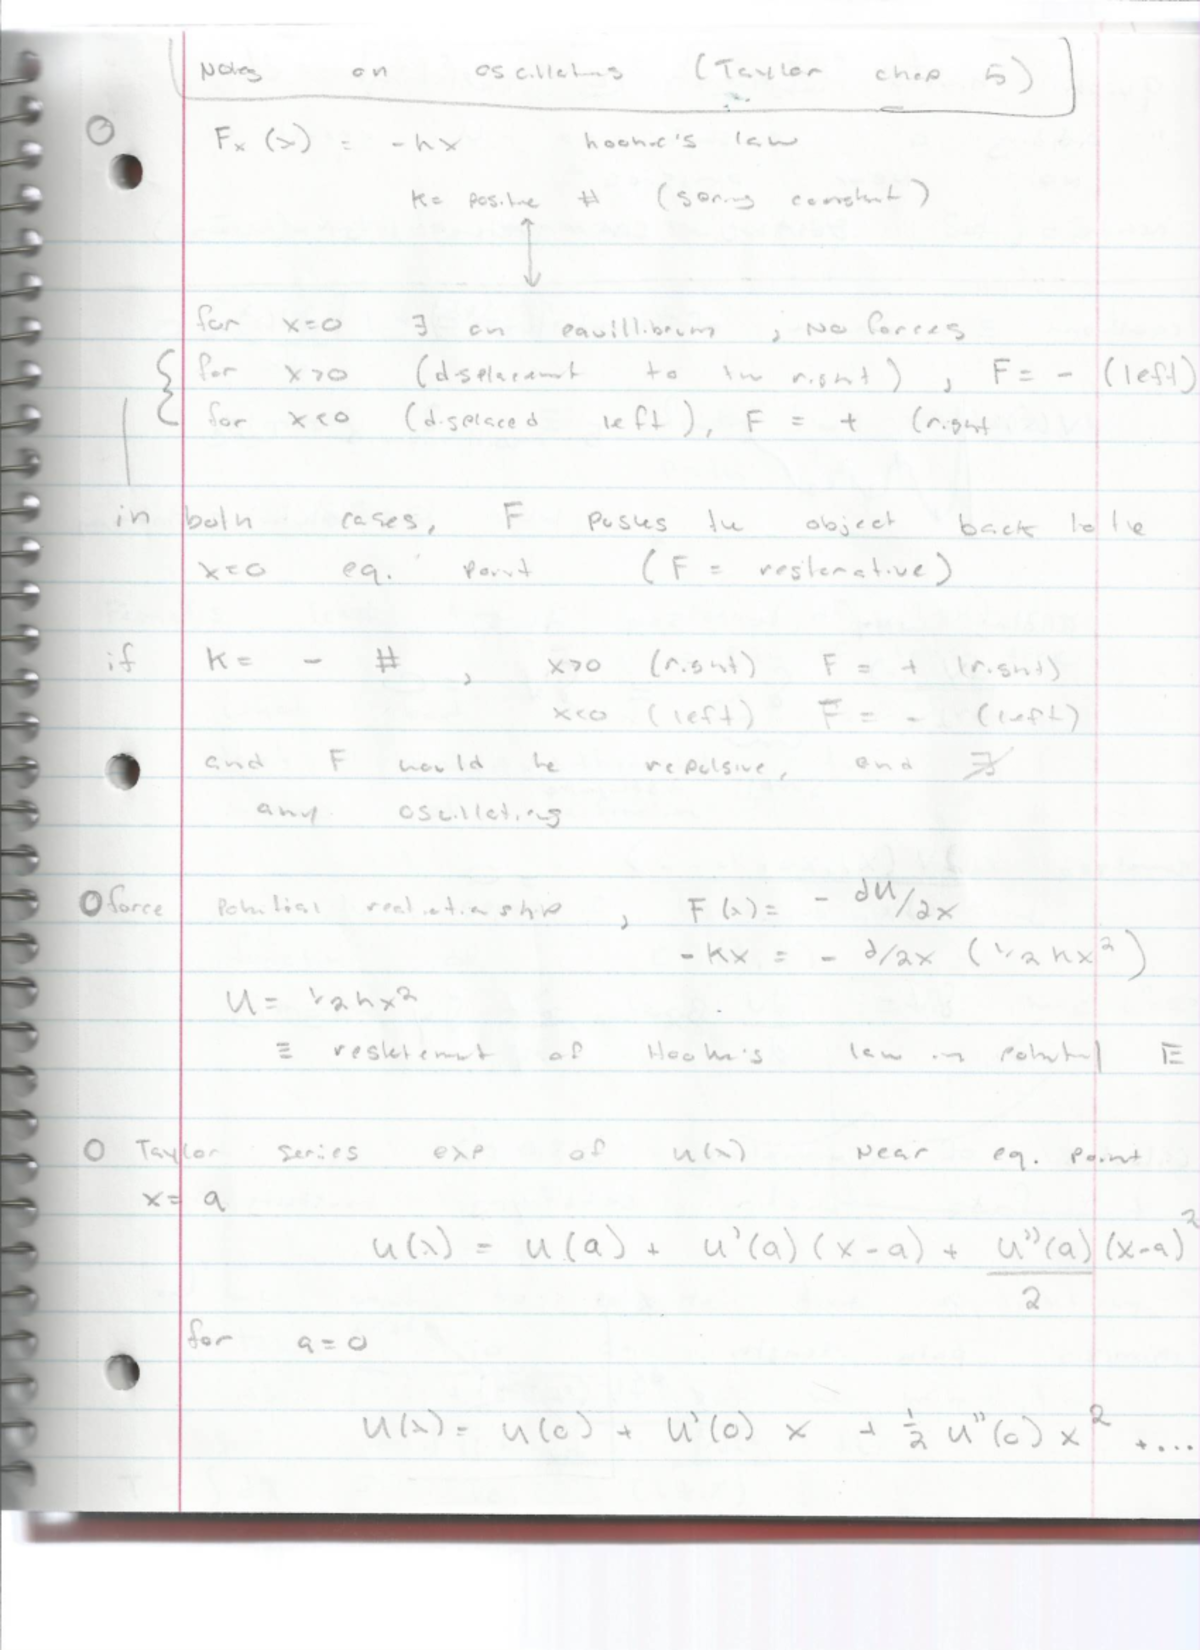 Notes on oscillations (Taylor chap 5)
Fx (x) = -kx hooke's law
k= positive # (spring constant)
for x=0 ∃ an equillibrium , No forces
for x>0 (displacemnt to the right) , F= - (left)
for x<0 (displaced left), F = + (right
in both cases, F puses the object back to the
x=0 eq. point (F = restorative)
if K= - # , x>0 (right) F = + (right)
x<0 (left) F = - (left)
and F would be repulsive, and ∄
any oscillating
force potential realationship , F(x)= - ∂U/∂x
-kx = - ∂/∂x (1/2 kx²)
U= 1/2 kx²
≡ restatemnt of Hooke's law in potential E
Taylor series exp of u(x) Near eq. point
x= a
u(x) = u(a) + u'(a)(x-a) + u''(a)/2 (x-a)²
for a=0
u(x)= u(0) + u'(0) x + 1/2 u''(0) x² +...